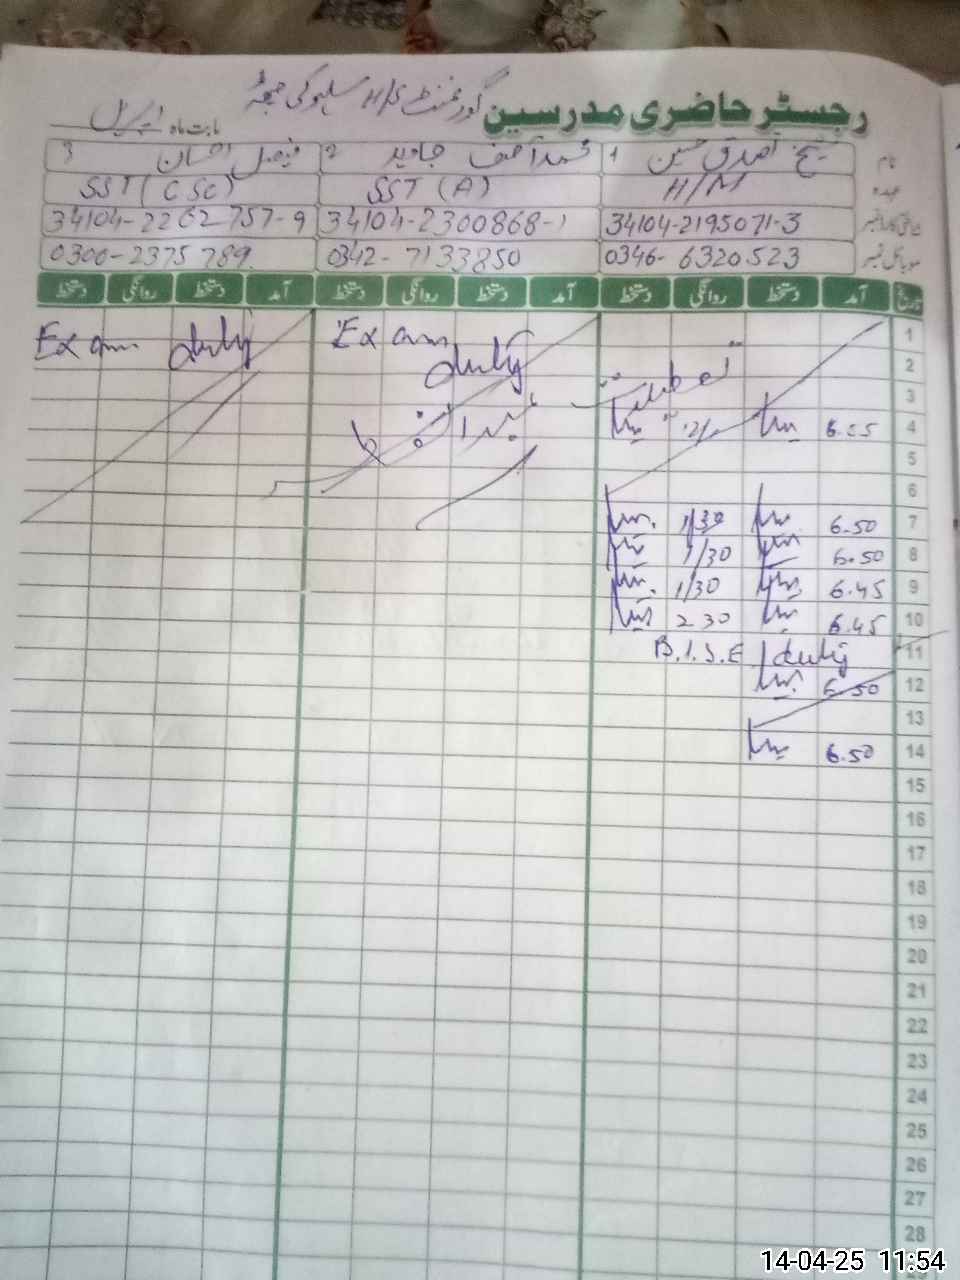 گورنمنٹ H/S
رجسٹر حاضری مدرسین
بابت ماہ اپریل
نام 1 شیخ اصدق حسین 2 محمد آصف جاوید 3 فیصل احسان
عہدہ H/M SST (A) SST (CSC)
شناختی کارڈ نمبر 34104-2195071-3 34104-2300868-1 34104-2262757-9
موبائل نمبر 0346-6320523 0342-7133850 0300-2375789
تاریخ آمد دستخط روانگی دستخط آمد دستخط روانگی دستخط آمد دستخط روانگی دستخط
1 Exam duty Exam duty
2 تعطیلات
3
4
5
6
7 6.50 1/30
8 6.50 1/30
9 6.45 1/30
10 6.45 2 30
11 B.I.S.E duty
12 6.50
13
14 6.50
15
16
17
18
19
20
21
22
23
24
25
26
27
28
14-04-25 11:54